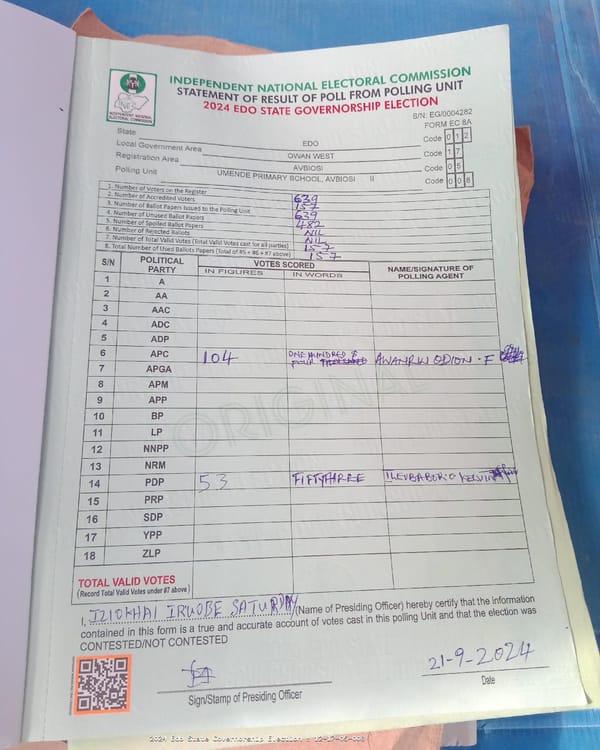 INDEPENDENT NATIONAL ELECTORAL COMMISSION
STATEMENT OF RESULT OF POLL FROM POLLING UNIT
2024 EDO STATE GOVERNORSHIP ELECTION
S/N: EG/0004282
FORM EC 8A
INEC
INDEPENDENT NATIONAL
ELECTORAL COMMISSION
State EDO Code 0 1 2
Local Government Area OWAN WEST Code 1 7
Registration Area AVBIOSI Code 0 5
Polling Unit UMENDE PRIMARY SCHOOL, AVBIOSI II Code 0 0 8
1. Number of Voters on the Register 639
2. Number of Accredited Voters 157
3. Number of Ballot Papers Issued to the Polling Unit 639
4. Number of Unused Ballot Papers 482
5. Number of Spoiled Ballot Papers NIL
6. Number of Rejected Ballots NIL
7. Number of Total Valid Votes (Total Valid Votes cast for all parties) 157
8. Total Number of Used Ballots Papers (Total of #5 + #6 + #7 above) 157
S/N POLITICAL PARTY VOTES SCORED NAME/SIGNATURE OF POLLING AGENT
IN FIGURES IN WORDS
1 A
2 AA
3 AAC
4 ADC
5 ADP
6 APC 104 ONE HUNDRED & FOUR AWANRIN ODION - F
7 APGA
8 APM
9 APP
10 BP
11 LP
12 NNPP
13 NRM
14 PDP 53 FIFTYTHREE KELVIN
15 PRP
16 SDP
17 YPP
18 ZLP
ORIGINAL
TOTAL VALID VOTES
(Record Total Valid Votes under #7 above)
I, IZIOKHAI IRUOBE SATURDAY (Name of Presiding Officer) hereby certify that the information
contained in this form is a true and accurate account of votes cast in this polling Unit and that the election was
CONTESTED/NOT CONTESTED
21-9-2024
Sign/Stamp of Presiding Officer Date
2024 Edo State Governorship Election - 12-17-05-008